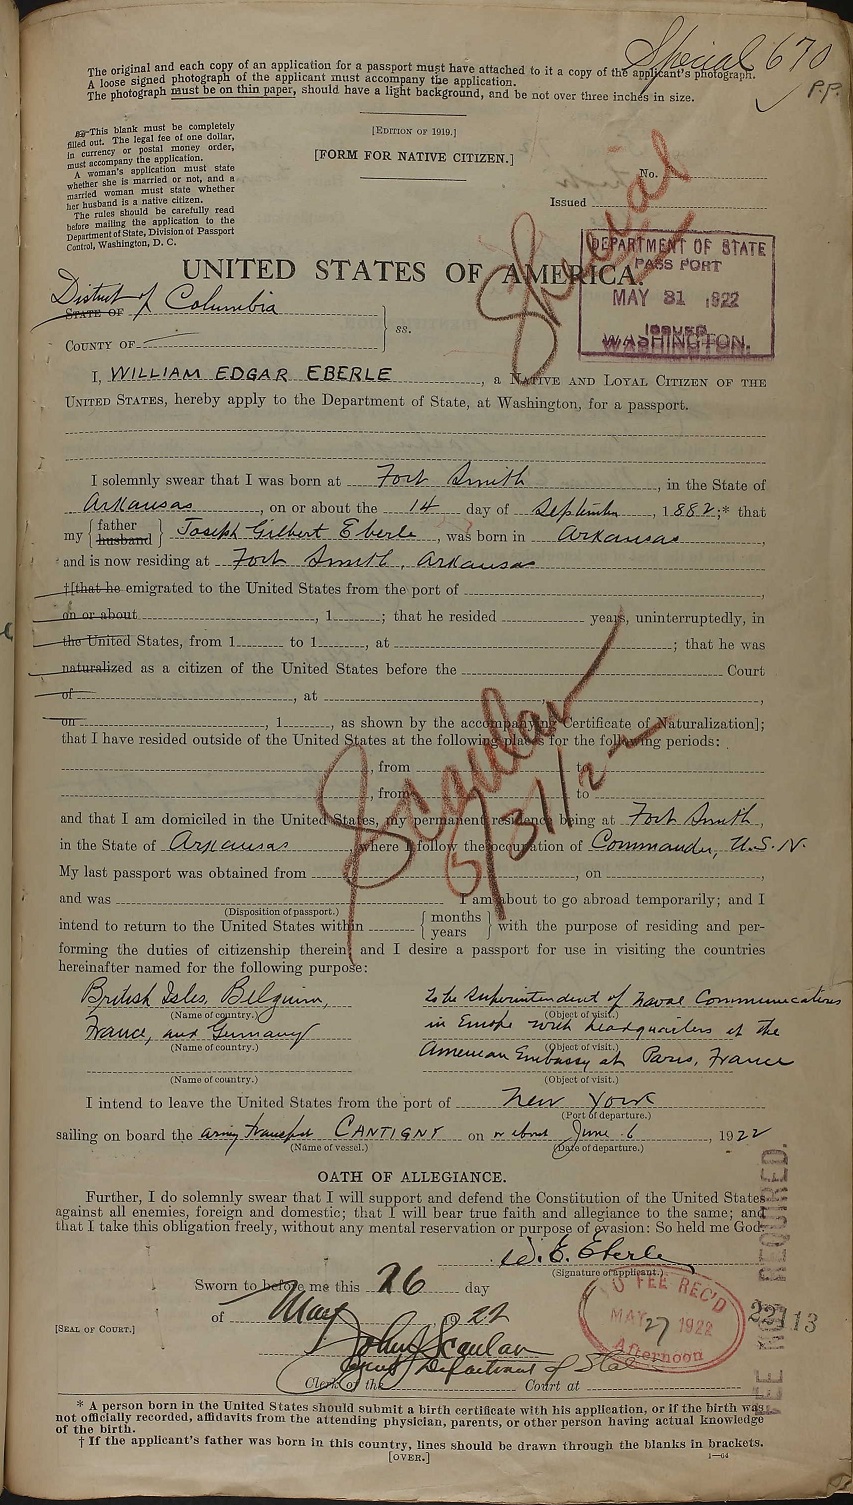 Special 670
P.P.
The original and each copy of an application for a passport must have attached to it a copy of the applicant's photograph.
A loose signed photograph of the applicant must accompany the application.
The photograph must be on thin paper, should have a light background, and be not over three inches in size.
This blank must be completely
filled out. The legal fee of one dollar,
in currency or postal money order,
must accompany the application.
A woman's application must state
whether she is married or not, and a
married woman must state whether
her husband is a native citizen.
The rules should be carefully read
before mailing the application to the
Department of State, Division of Passport
Control, Washington, D. C.
[EDITION OF 1919.]
[FORM FOR NATIVE CITIZEN.]
No.
Issued
Special
DEPARTMENT OF STATE
PASSPORT
MAY 31 1922
ISSUED
WASHINGTON.
UNITED STATES OF AMERICA.
District of Columbia
STATE OF
COUNTY OF
ss.
I, WILLIAM EDGAR EBERLE, a NATIVE AND LOYAL CITIZEN OF THE
UNITED STATES, hereby apply to the Department of State, at Washington, for a passport.
I solemnly swear that I was born at Fort Smith, in the State of
Arkansas, on or about the 14 day of September, 1882;* that
my {father husband} Joseph Gilbert Eberle, was born in Arkansas,
and is now residing at Fort Smith, Arkansas
†[that he emigrated to the United States from the port of
on or about, 1; that he resided years, uninterruptedly, in
the United States, from 1 to 1, at; that he was
naturalized as a citizen of the United States before the Court
of, at,
on, 1, as shown by the accompanying Certificate of Naturalization];
that I have resided outside of the United States at the following places for the following periods:
, from to
, from to
Scanlan
5/31/2
and that I am domiciled in the United States, my permanent residence being at Fort Smith,
in the State of Arkansas, where I follow the occupation of Commander, U.S.N.
My last passport was obtained from, on,
and was I am about to go abroad temporarily; and I
(Disposition of passport.)
intend to return to the United States within {months years} with the purpose of residing and per-
forming the duties of citizenship therein; and I desire a passport for use in visiting the countries
hereinafter named for the following purpose:
British Isles, Belgium, to be Superintendent of Naval Communications
(Name of country.) (Object of visit.)
France, and Germany in Europe with headquarters at the
(Name of country.) (Object of visit.)
American Embassy at Paris, France
(Name of country.) (Object of visit.)
I intend to leave the United States from the port of New York
(Port of departure.)
sailing on board the army transport CANTIGNY on or about June 6, 1922
(Name of vessel.) (Date of departure.)
OATH OF ALLEGIANCE.
Further, I do solemnly swear that I will support and defend the Constitution of the United States
against all enemies, foreign and domestic; that I will bear true faith and allegiance to the same; and
that I take this obligation freely, without any mental reservation or purpose of evasion: So held me God.
W. E. Eberle
(Signature of applicant.)
Sworn to before me this 26 day
of May 1922
[SEAL OF COURT.]
John J Scanlan
Agent, Department of State
Clerk of the Court at
NO FEE REC'D
MAY 27 1922
Afternoon
FEE NOT REQUIRED.
* A person born in the United States should submit a birth certificate with his application, or if the birth was
not officially recorded, affidavits from the attending physician, parents, or other person having actual knowledge
of the birth.
† If the applicant's father was born in this country, lines should be drawn through the blanks in brackets.
[OVER.]
1—64